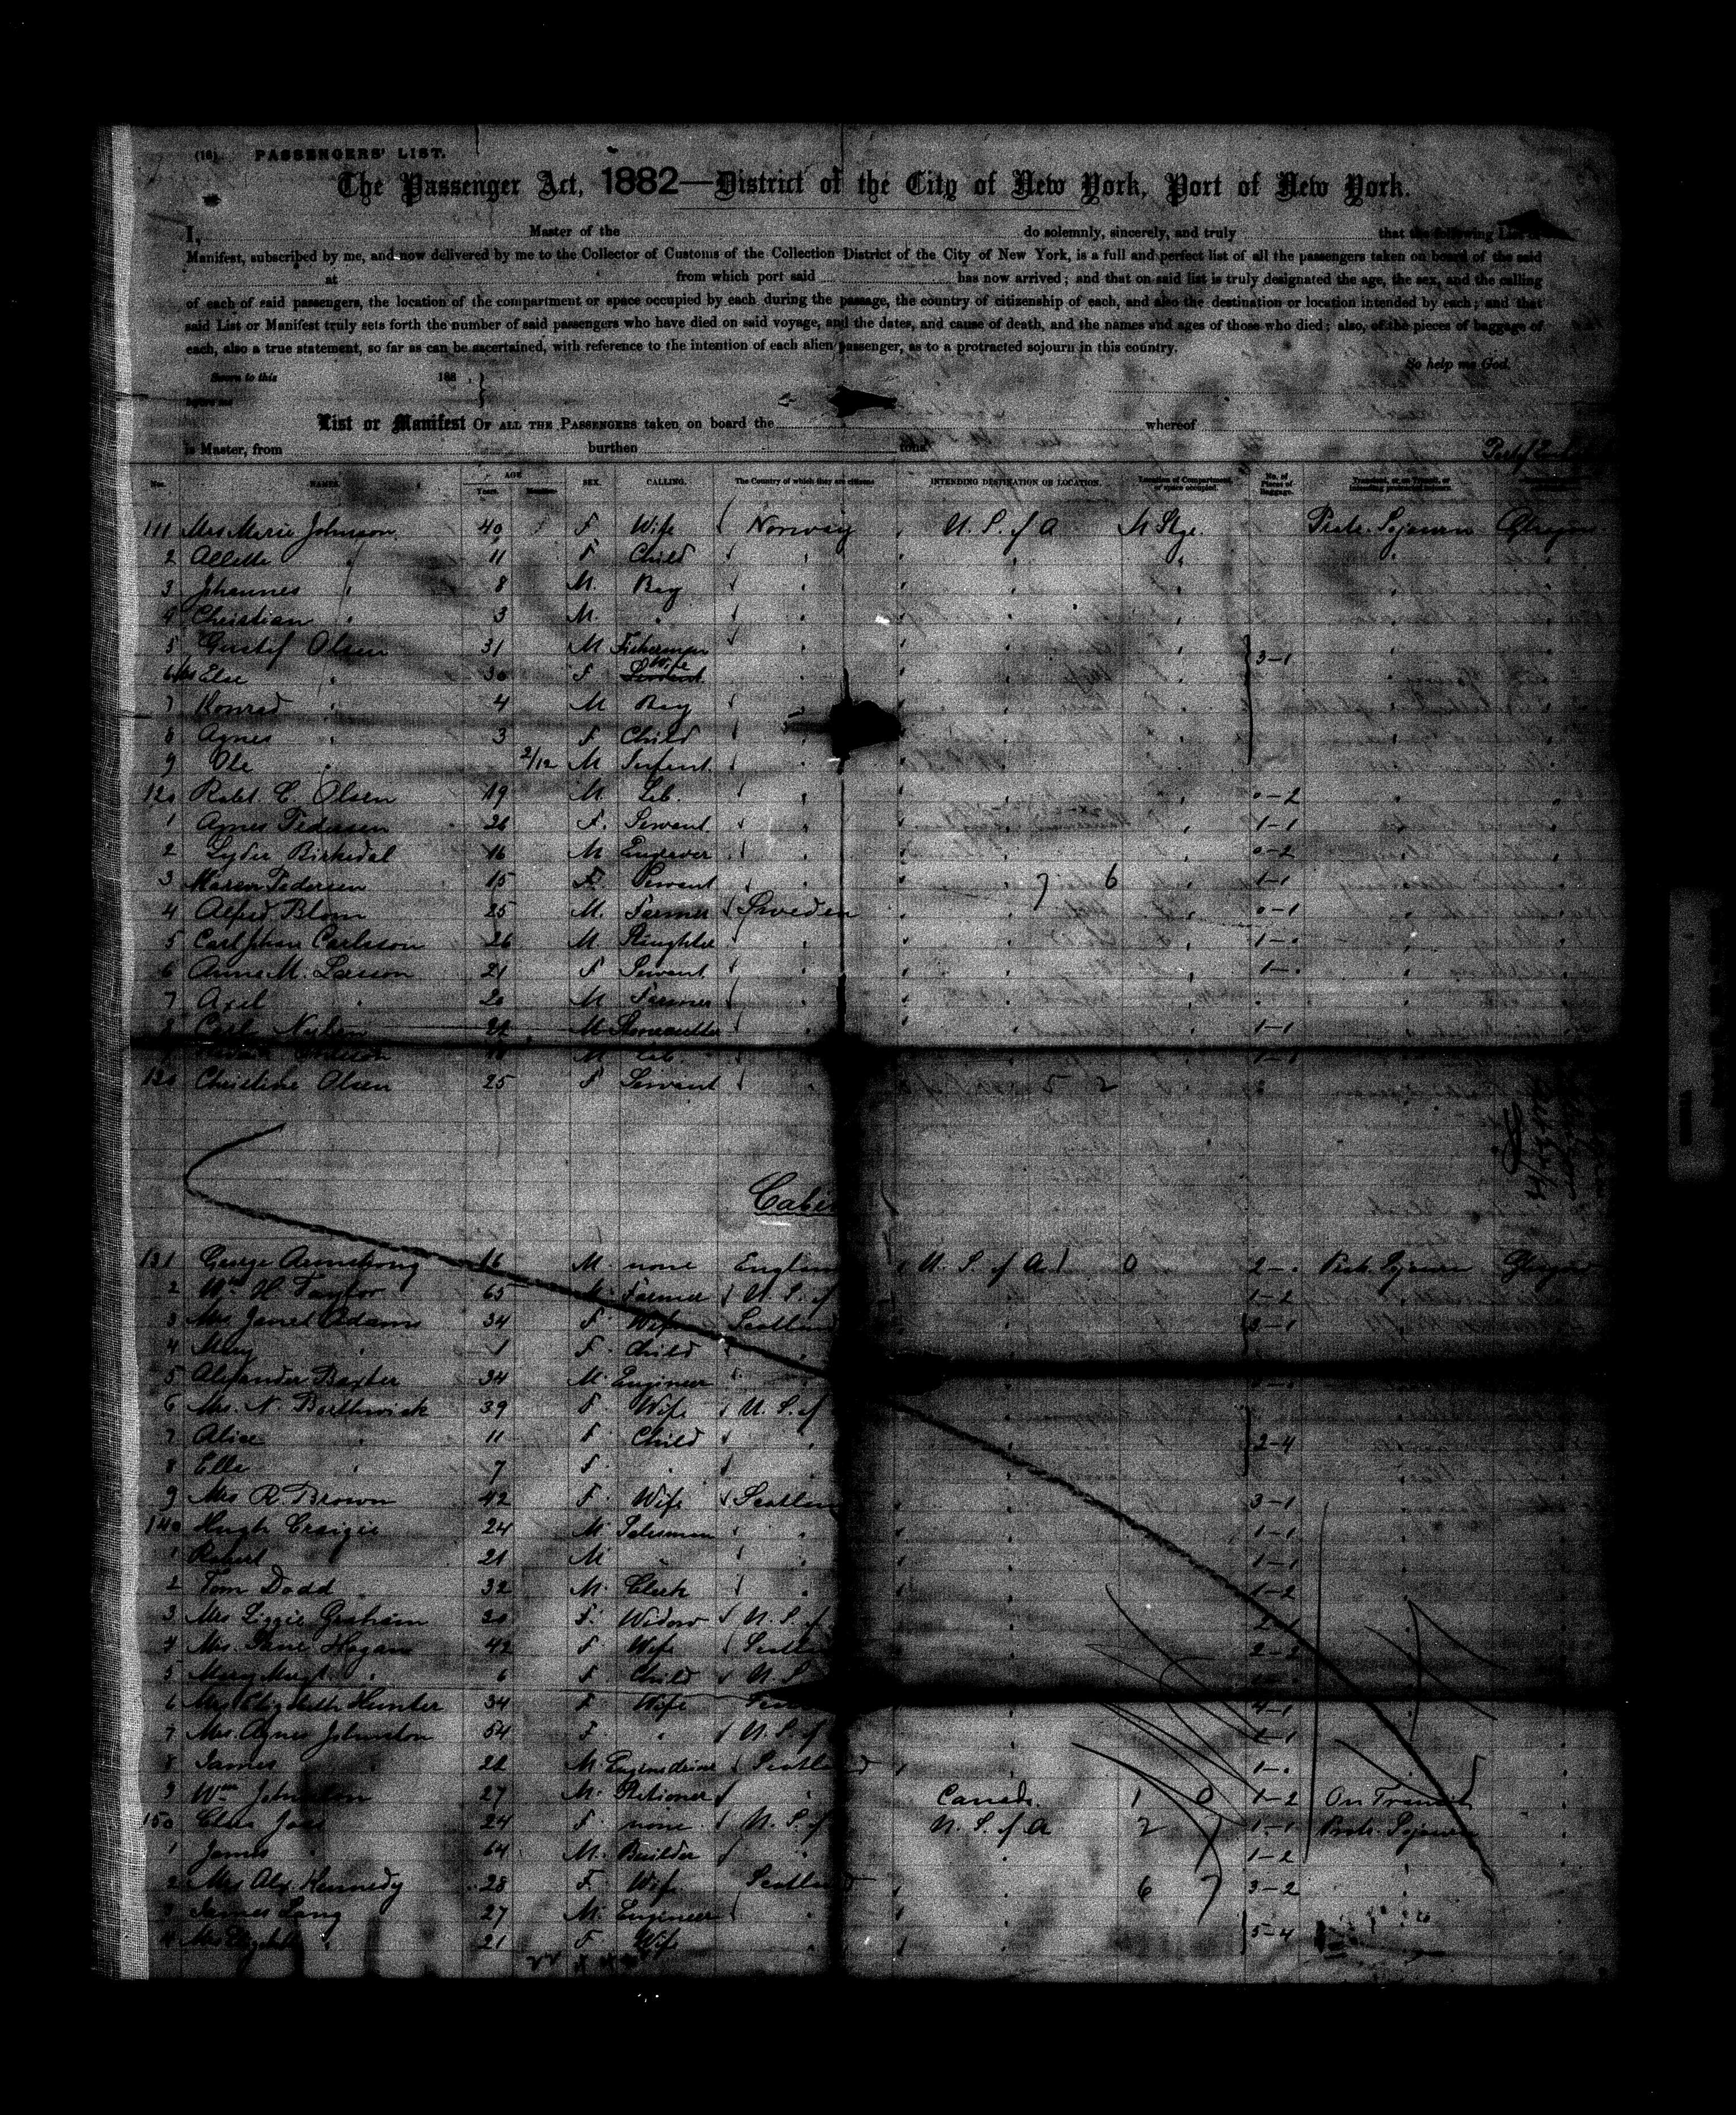 (16) PASSENGERS' LIST.
The Passenger Act, 1882—District of the City of New York, Port of New York.
I, Master of the do solemnly, sincerely, and truly that the following List or
Manifest, subscribed by me, and now delivered by me to the Collector of Customs of the Collection District of the City of New York, is a full and perfect list of all the passengers taken on board of the said
at from which port said has now arrived; and that on said list is truly designated the age, the sex, and the calling
of each of said passengers, the location of the compartment or space occupied by each during the passage, the country of citizenship of each, and also the destination or location intended by each; and that
said List or Manifest truly sets forth the number of said passengers who have died on said voyage, and the dates, and cause of death, and the names and ages of those who died; also, of the pieces of baggage of
each, also a true statement, so far as can be ascertained, with reference to the intention of each alien passenger, as to a protracted sojourn in this country.
So help me God.
Sworn to this 188 .
before me
List or Manifest OF ALL THE PASSENGERS taken on board the whereof
is Master, from burthen tons.
Nos. NAMES. AGE Years. Months. SEX. CALLING. The Country of which they are citizens INTENDING DESTINATION OR LOCATION. Location of Compartment or space occupied. No. of Pieces of Baggage. Transient, or in Transit, or intending protracted sojourn.
111 Mrs Marie Johnson 40 F Wife Norway U. S. of A Stge. Protr. Sojourn Glasgow
2 Allette " 11 F Child "
3 Johannes " 8 M. Boy "
4 Christian " 3 M. " "
5 Gustof Olsen 31 M Fisherman " 3-1
6 Mrs Else " 30 F Wife "
7 Konrad " 4 M Boy "
8 Agnes " 3 F Child "
9 Ole " 2/12 M Infant "
120 Robt. C. Olsen 19 M. Lab. " 0-2
1 Agnes Pedersen 26 F. Servant " 1-1
2 Lyder Birkedal 16 M Engraver " 0-2
3 Maren Pedersen 15 F. Servant " 7 6 1-1
4 Alfred Blom 25 M. Farmer Sweden 0-1
5 Carl Johan Carlsson 26 M " 1-"
6 Anna M. Larson 21 F Servant " 1-"
7 Axel " 20 M Farmer "
8 Carl 22 M Stonecutter " 1-1
M Lab.
130 Christine Olsen 25 F Servant " 5 2
Cabin
131 George Armstrong 16 M. none England U. S. of A. 1 0 2-" Protr. Sojourn Glasgow
2 Wm H Taylor 65 M. Farmer U. S. of 1-2
3 Mrs Janet Adams 34 F. Wife Scotland 3-1
4 Mary " 1 F. Child "
5 Alexander Baxter 34 M. Engineer "
6 Mrs. N. Borthwick 39 F. Wife U. S. of
7 Alice " 11 F. Child " 2-4
8 Ella " 7 F. " "
9 Mrs R. Brown 42 F. Wife Scotland 3-1
140 Hugh Craigie 24 M. Salesman " 1-1
1 Robert " 21 M " " 1-1
2 Tom Dodd 32 M. Clerk " 1-2
3 Mrs Lizzie Graham 20 F. Widow U. S. of 2-1
4 Mrs. Jane Hogan 42 F. Wife Scotland 2-2
5 Mary Magt " 6 F. Child U. S.
6 Mrs Elizabeth Hunter 34 F. Wife 4-1
7 Mrs. Agnes Johnston 54 F. " U. S. of 1-1
8 James " 22 M. Scotland 1-"
9 Wm Johnston 27 M. " Canada. 1 0 1-2 On Transit
150 24 F. none U. S. of U. S. of A 2 1-1 Protr. Sojourn
1 James " 64 M. Builder " 1-2
2 Mrs Alex. Kennedy 28 F. Wife Scotland 6 7 3-2
3 James Lang 27 M. Engineer " 5-4
4 Mrs " 21 F. Wife